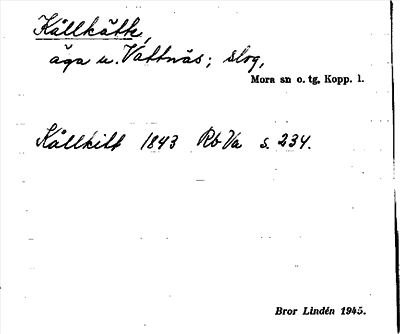 Kållkätt,
äga u. Vattnäs; slog,
Mora sn o. tg, Kopp. l.
Kållkitt 1843 Rb Va s. 234.
Bror Lindén 1945.